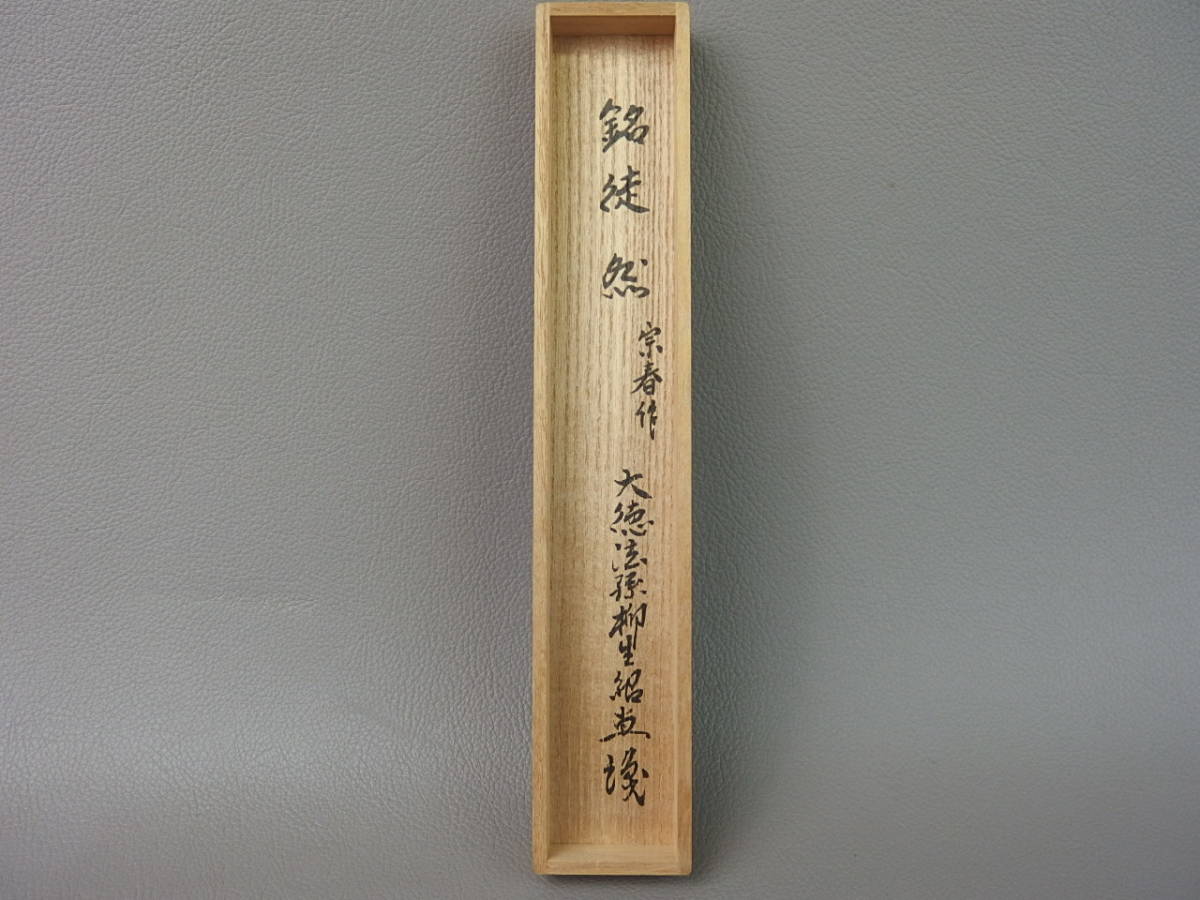 銘 徒然
宗春作
大徳法孫柳生紹尚識